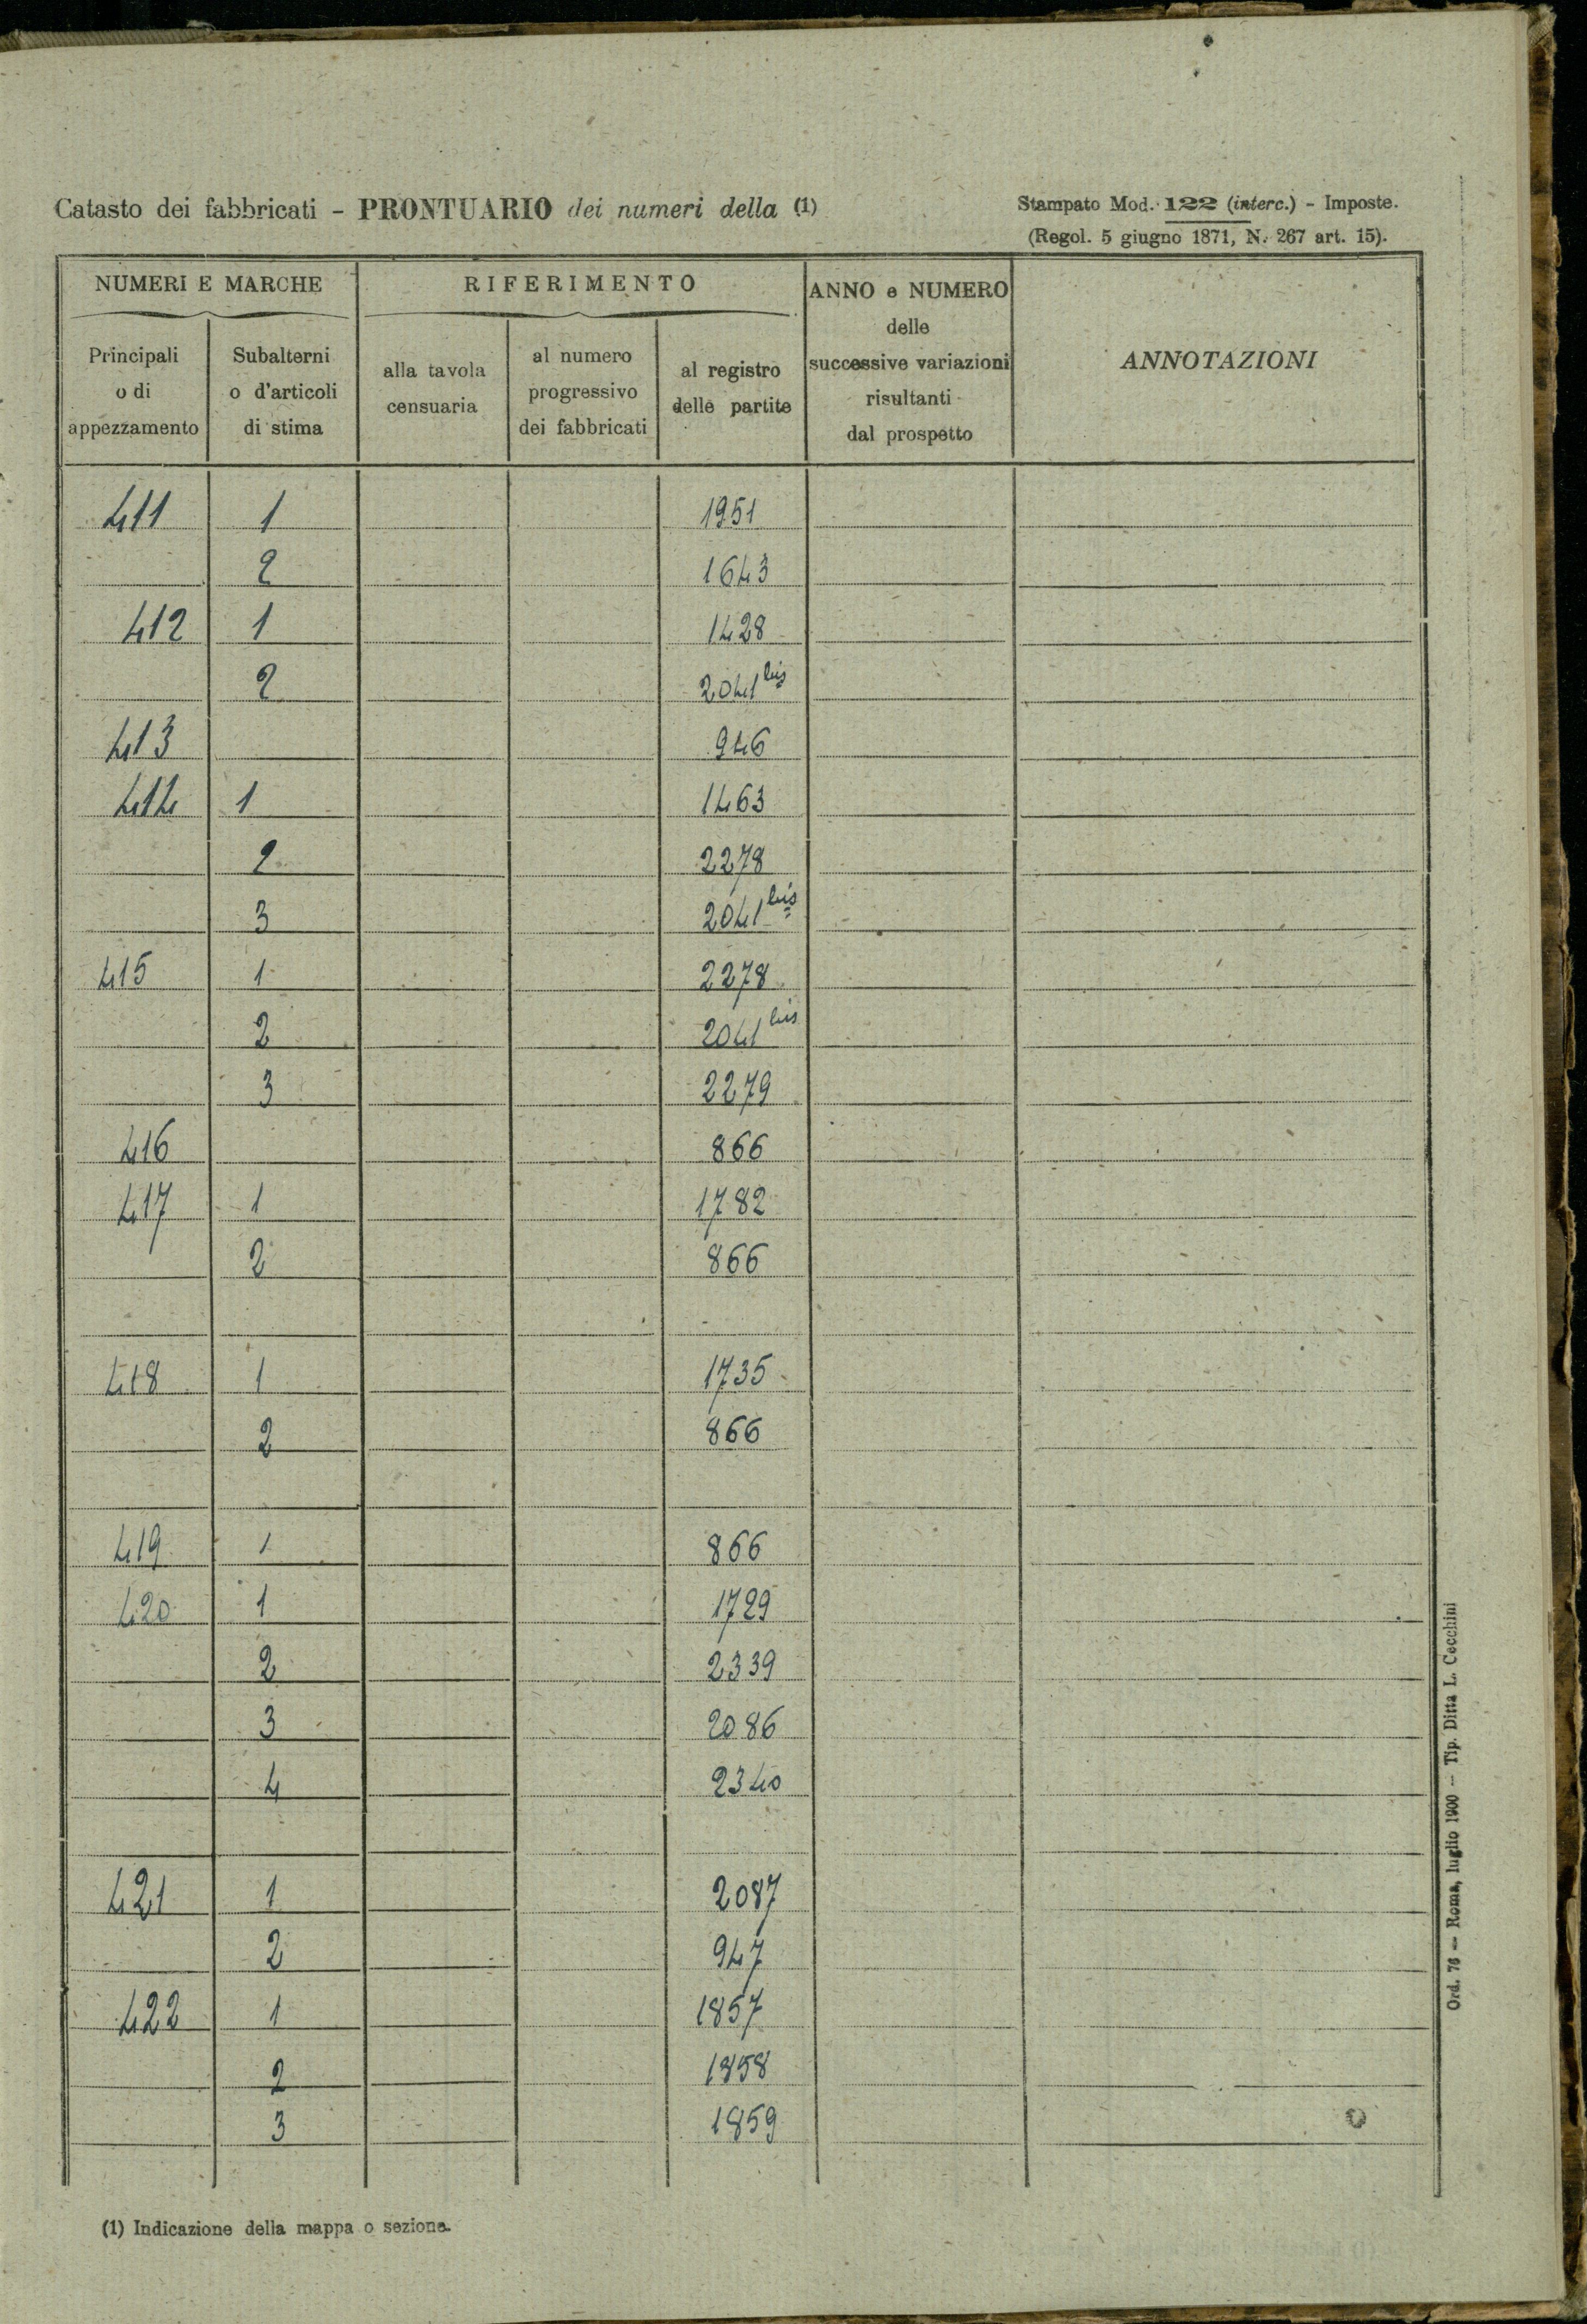 Catasto dei fabbricati - PRONTUARIO dei numeri della (1)
Stampato Mod. 122 (interc.) - Imposte.
(Regol. 5 giugno 1871, N. 267 art. 15).
NUMERI E MARCHE
RIFERIMENTO
ANNO e NUMERO delle successive variazioni risultanti dal prospetto
ANNOTAZIONI
Principali o di appezzamento
Subalterni o d'articoli di stima
alla tavola censuaria
al numero progressivo dei fabbricati
al registro delle partite
411 1 1951
2 1643
412 1 1428
2 2041 bis
413 946
414 1 1463
2 2278
3 2041 bis
415 1 2278
2 2041 bis
3 2279
416 866
417 1 1782
2 866
418 1 1735
2 866
419 1 866
420 1 1729
2 2339
3 2086
4 2340
421 1 2087
2 947
422 1 1857
2 1858
3 1859
(1) Indicazione della mappa o sezione.
Ord. 76 — Roma, luglio 1900 — Tip. Ditta L. Cecchini